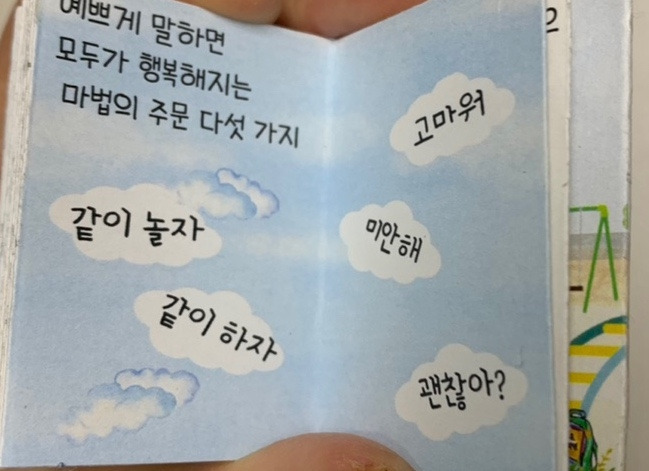 예쁘게 말하면
모두가 행복해지는
마법의 주문 다섯 가지
같이 놀자
같이 하자
고마워
미안해
괜찮아?